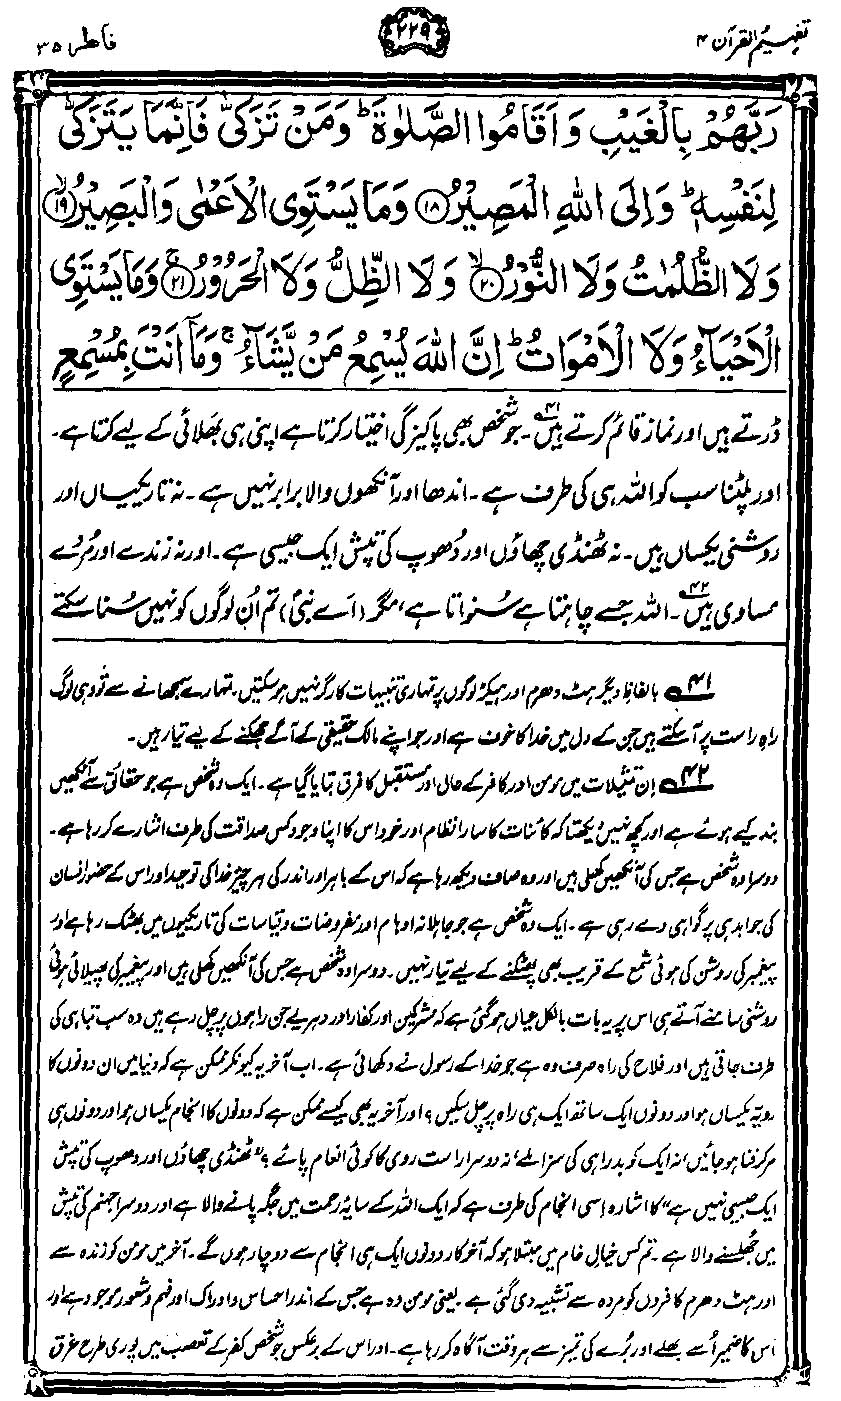 تفہیم القرآن ۴
۲۲۹
فاطر ۳۵
رَبَّهُمْ بِالْغَيْبِ وَاَقَامُوا الصَّلٰوةَ ؕ وَمَنْ تَزَكّٰى فَاِنَّمَا يَتَزَكّٰى
لِنَفْسِهٖ ؕ وَاِلَى اللّٰهِ الْمَصِيْرُ ﴿۱۸﴾ وَمَا يَسْتَوِى الْاَعْمٰى وَالْبَصِيْرُ ۙ﴿۱۹﴾
وَلَا الظُّلُمٰتُ وَلَا النُّوْرُ ۙ﴿۲۰﴾ وَلَا الظِّلُّ وَلَا الْحَرُوْرُ ۚ﴿۲۱﴾ وَمَا يَسْتَوِى
الْاَحْيَآءُ وَلَا الْاَمْوَاتُ ؕ اِنَّ اللّٰهَ يُسْمِعُ مَنْ يَّشَآءُ ۚ وَمَاۤ اَنْتَ بِمُسْمِعٍ
ڈرتے ہیں اور نماز قائم کرتے ہیں۴۱۔ جو شخص بھی پاکیزگی اختیار کرتا ہے اپنی ہی بھلائی کے لیے کرتا ہے۔
اور پلٹنا سب کو اللہ ہی کی طرف ہے۔ اندھا اور آنکھوں والا برابر نہیں ہے۔ نہ تاریکیاں اور
روشنی یکساں ہیں۔ نہ ٹھنڈی چھاؤں اور دُھوپ کی تپش ایک جیسی ہے۔ اور نہ زندے اور مُردے
مساوی ہیں۴۲۔ اللہ جسے چاہتا ہے سُنواتا ہے، مگر (اے نبیؐ) تم اُن لوگوں کو نہیں سُنا سکتے
۴۱ بالفاظِ دیگر ہٹ دھرم اور ہیکڑ لوگوں پر تمہاری تنبیہات کارگر نہیں ہو سکتیں۔ تمہارے سمجھانے سے تو وہی لوگ
راہِ راست پر آ سکتے ہیں جن کے دل میں خدا کا خوف ہے اور جو اپنے مالکِ حقیقی کے آگے جھکنے کے لیے تیار ہیں۔
۴۲ اِن تمثیلات میں مومن اور کافر کے حال اور مستقبل کا فرق بتایا گیا ہے۔ ایک وہ شخص ہے جو حقائق سے آنکھیں
بند کیے ہوئے ہے اور کچھ نہیں دیکھتا کہ کائنات کا سارا نظام اور خود اس کا اپنا وجود کس صداقت کی طرف اشارے کر رہا ہے۔
دوسرا وہ شخص ہے جس کی آنکھیں کھلی ہیں اور وہ صاف دیکھ رہا ہے کہ اس کے باہر اور اندر کی ہر چیز خدا کی توحید اور اس کے حضور انسان
کی جوابدہی پر گواہی دے رہی ہے۔ ایک وہ شخص ہے جو جاہلانہ اوہام اور مفروضات و قیاسات کی تاریکیوں میں بھٹک رہا ہے اور
پیغمبر کی روشن کی ہوئی شمع کے قریب بھی پھٹکنے کے لیے تیار نہیں۔ دوسرا وہ شخص ہے جس کی آنکھیں کھلی ہیں اور پیغمبر کی پھیلائی ہوئی
روشنی سامنے آتے ہی اس پر یہ بات بالکل عیاں ہو گئی ہے کہ مشرکین اور کفار اور دہریے جن راہوں پر چل رہے ہیں وہ سب تباہی کی
طرف جاتی ہیں اور فلاح کی راہ صرف وہ ہے جو خدا کے رسول نے دکھائی ہے۔ اب آخر یہ کیونکر ممکن ہے کہ دنیا میں ان دونوں کا
رویہ یکساں ہو اور دونوں ایک ساتھ ایک ہی راہ پر چل سکیں؟ اور آخر یہ بھی کیسے ممکن ہے کہ دونوں کا انجام یکساں ہو اور دونوں ہی
مر کر فنا ہو جائیں، نہ ایک کو بدراہی کی سزا ملے، نہ دوسرا راست روی کا کوئی انعام پائے؟ ”ٹھنڈی چھاؤں اور دھوپ کی تپش
ایک جیسی نہیں ہے“ کا اشارہ اِسی انجام کی طرف ہے کہ ایک اللہ کے سایۂ رحمت میں جگہ پانے والا ہے اور دوسرا جہنم کی تپش
میں جُھلسنے والا ہے۔ تم کس خیالِ خام میں مبتلا ہو کہ آخر کار دونوں ایک ہی انجام سے دوچار ہوں گے۔ آخر میں مومن کو زندہ سے
اور ہٹ دھرم کافروں کو مردہ سے تشبیہ دی گئی ہے۔ یعنی مومن وہ ہے جس کے اندر احساس و ادراک اور فہم و شعور موجود ہے اور
اُس کا ضمیر اُسے بھلے اور بُرے کی تمیز سے ہر وقت آگاہ کر رہا ہے۔ اور اس کے برعکس جو شخص کفر کے تعصب میں پوری طرح غرق